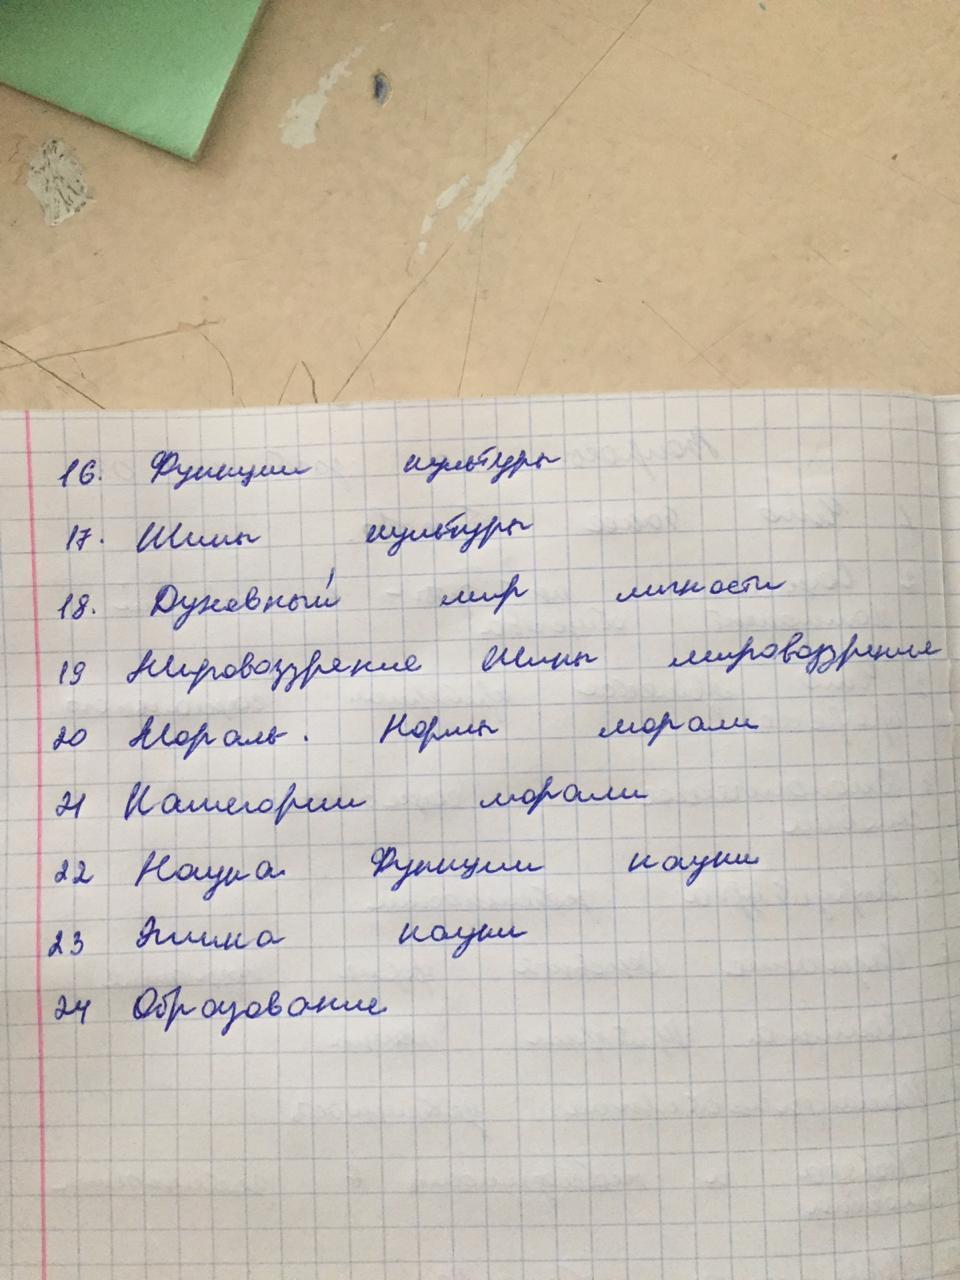 16. Функции культуры
17. Типы культуры
18. Духовный мир личности
19 Мировоззрение Типы мировоззрение
20 Мораль. Нормы морали
21 Категории морали
22 Наука Функции науки
23 Этика науки
24 Образование